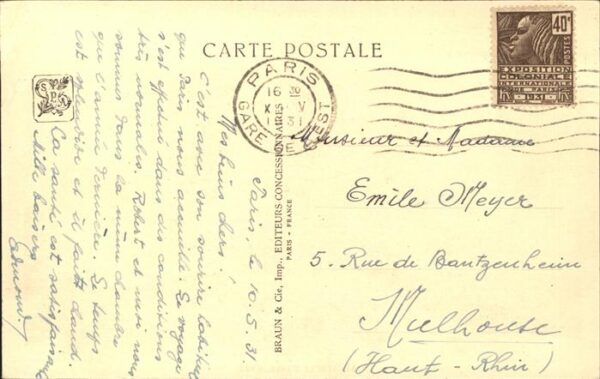 CARTE POSTALE
40c
POSTES
EXPOSITION
COLONIALE
INTERNATIONALE
DE PARIS
1931
PARIS
16 30
10 V
31
GARE DE L'EST
BRAUN & Cie, Imp., EDITEURS CONCESSIONNAIRES
PARIS - FRANCE
Paris, le 10.5.31.
Mes biens chers!
C'est avec son sourire habituel
que Paris nous accueille. Le voyage
s'est effectué dans des conditions
très normales. Robert et moi nous
sommes dans la même chambre
que l'année dernière. Le temps
est splendide et il fait chaud.
La santé est satisfaisante
Mille baisers
Edmond.
Monsieur et Madame
Emile Meyer
5. Rue de Bantzenheim
Mulhouse
(Haut-Rhin)